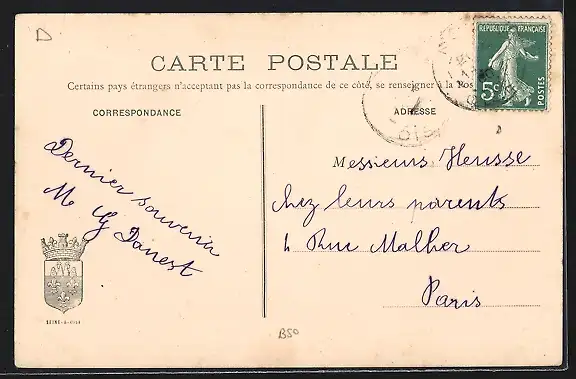 D
CARTE POSTALE
Certains pays étrangers n'acceptant pas la correspondance de ce côté, se renseigner à la Pos
CORRESPONDANCE
ADRESSE
RÉPUBLIQUE FRANÇAISE
5c
POSTES
OISE
Dernier souvenir
M Danest
Messieurs Heusse
chez leurs parents
4 Rue Malher
Paris
BSO